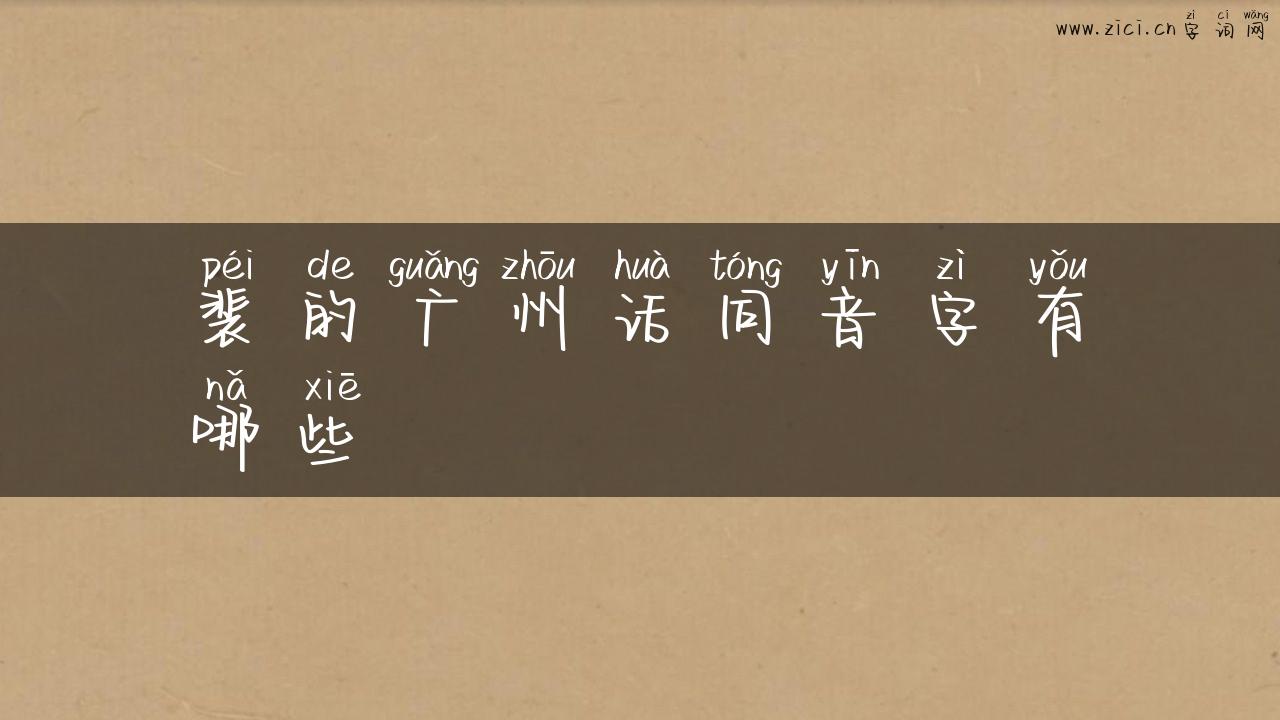 zì cí wǎng
www.zici.cn字词网
péi de guǎng zhōu huà tóng yīn zì yǒu
裴的广州话同音字有
nǎ xiē
哪些